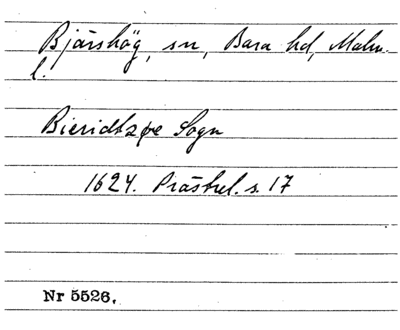 Bjärshög, sn, Bara hd, Malm.
l.
Sogn
1624. Prästrel. s. 17
Nr 5526.